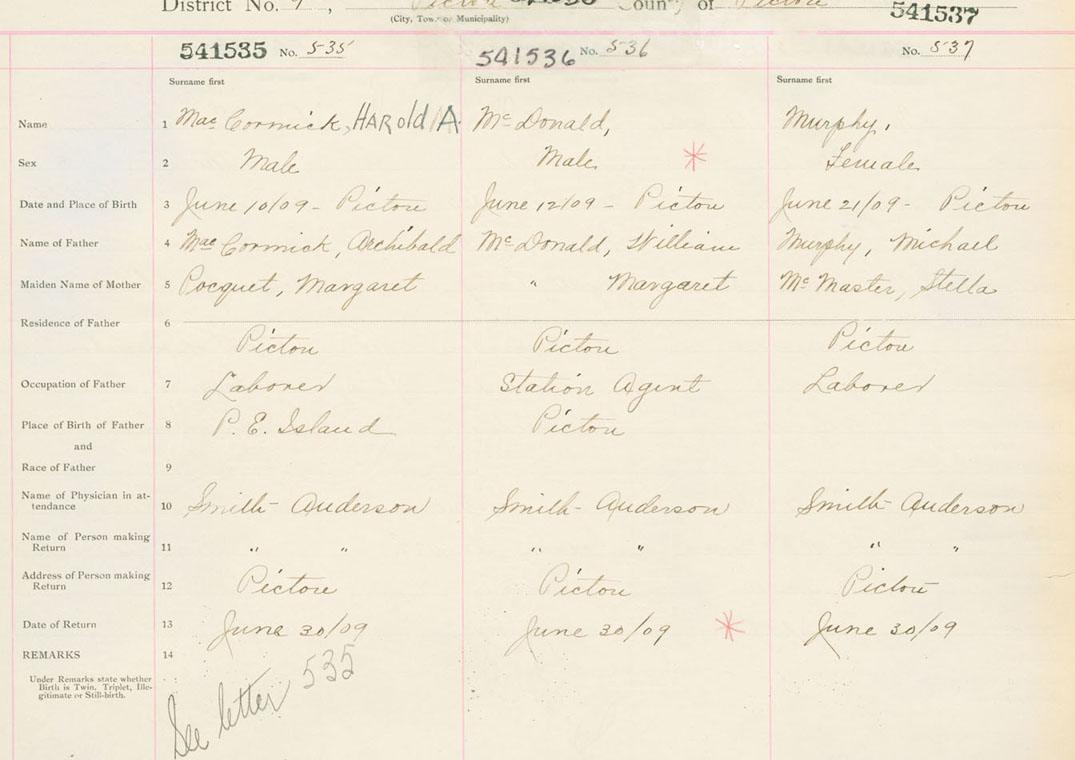 District No. 7, Pictou County of Pictou
(City, Town or Municipality)
541537
541535 No. 535 541536 No. 536 No. 537
Surname first Surname first Surname first
Name 1 MacCormick, HARold A. McDonald, Murphy,
Sex 2 Male Male Female
Date and Place of Birth 3 June 10/09 - Pictou June 12/09 - Pictou June 21/09 - Pictou
Name of Father 4 MacCormick, Archibald McDonald, William Murphy, Michael
Maiden Name of Mother 5 Cocquet, Margaret " Margaret McMaster, Stella
Residence of Father 6
Pictou Pictou Pictou
Occupation of Father 7 Laborer Station Agent Laborer
Place of Birth of Father 8 P. E. Island Pictou
and
Race of Father 9
Name of Physician in at-
tendance 10 Smith - Anderson Smith - Anderson Smith - Anderson
Name of Person making
Return 11 " " " " " "
Address of Person making
Return 12 Pictou Pictou Pictou
Date of Return 13 June 30/09 June 30/09 June 30/09
REMARKS 14
Under Remarks state whether
Birth is Twin. Triplet, Ille-
gitimate or Still-birth.
See letter 535